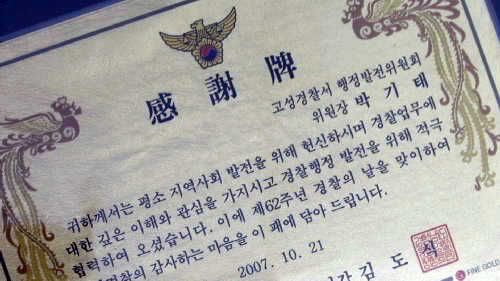 感謝牌
고성경찰서 행정발전위원회
위원장 박기태
귀하께서는 평소 지역사회 발전을 위해 헌신하시며 경찰업무에
대한 깊은 이해와 관심을 가지시고 경찰행정 발전을 위해 적극
협력하여 오셨습니다. 이에 제62주년 경찰의 날을 맞이하여
감사하는 마음을 이 패에 담아 드립니다.
2007. 10. 21
김 도 식
FINE GOLD